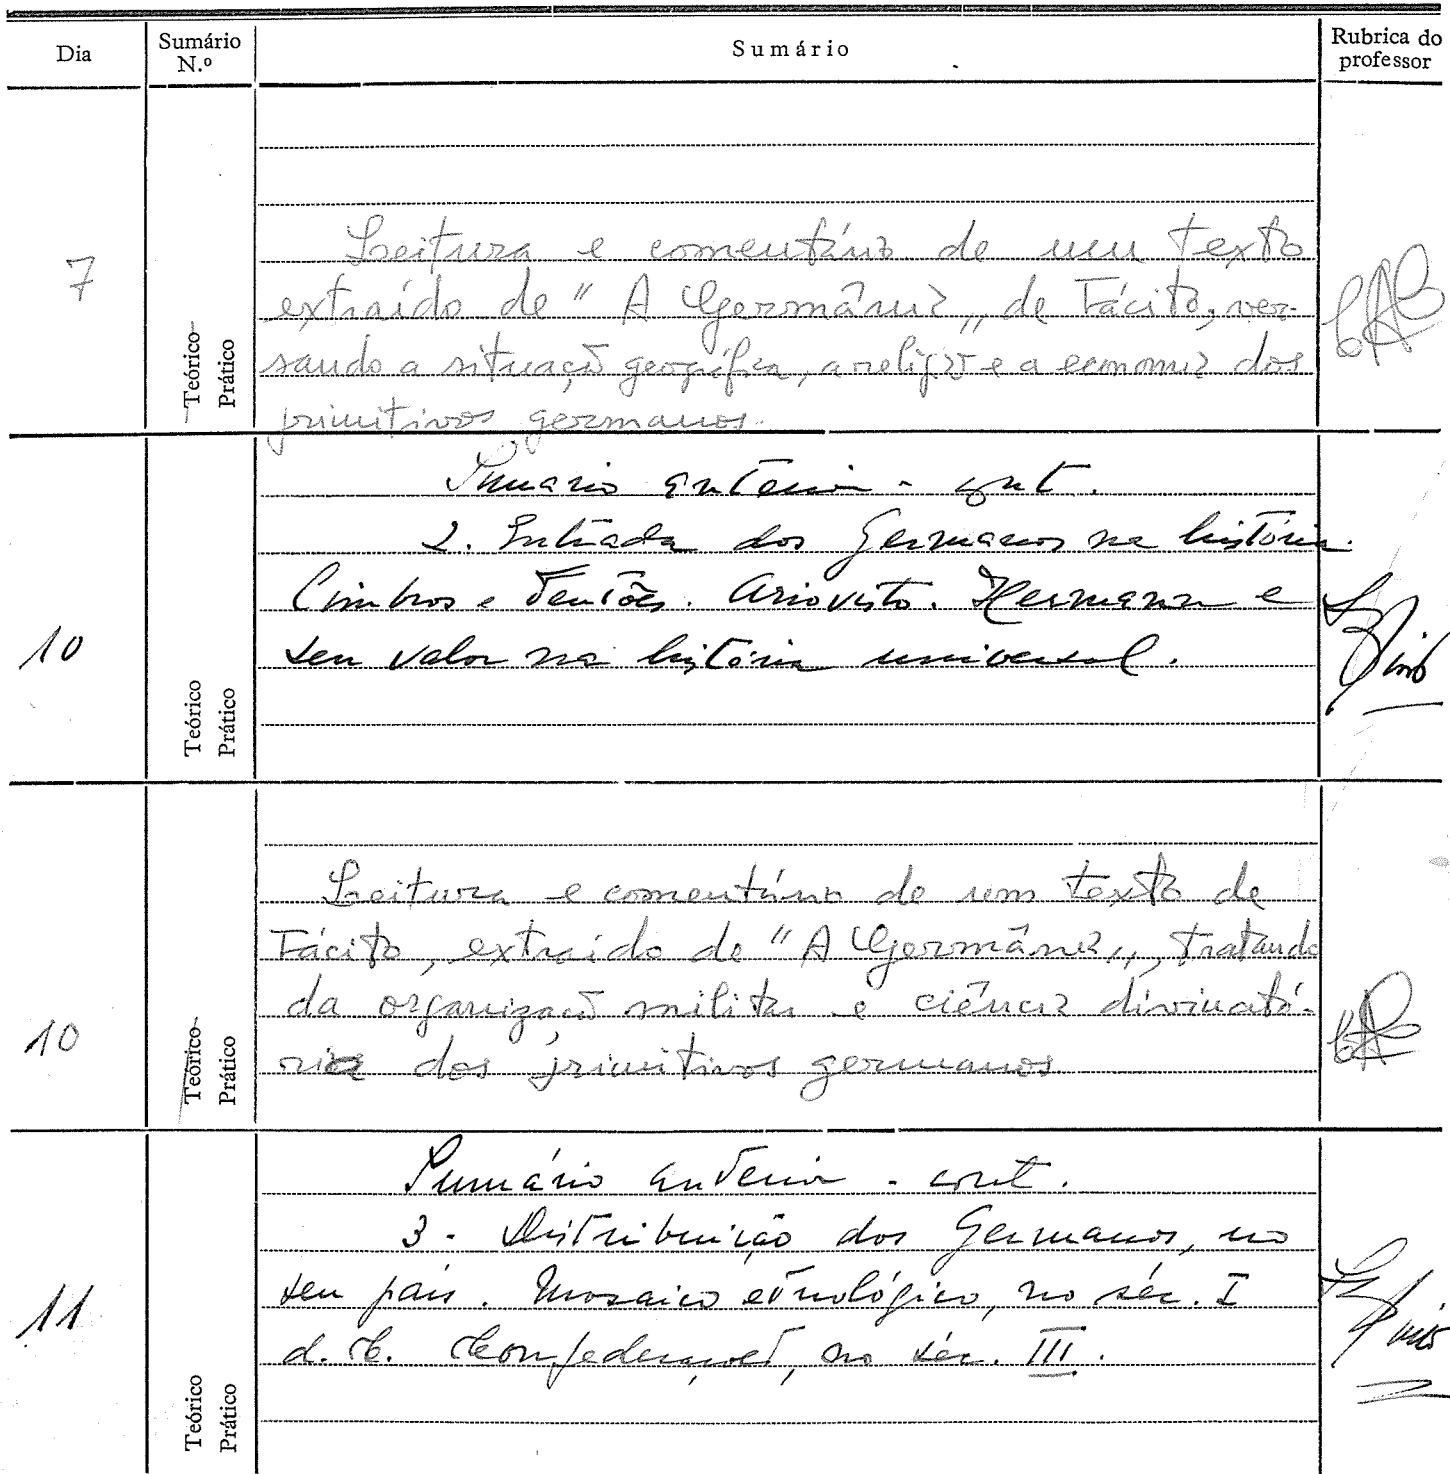 Dia Sumário N.º Sumário Rubrica do professor
7 Teórico-Prático
Leitura e comentário de um texto
extraído de "A Germânia„ de Tácito, ver-
sando a situação geográfica, a religião e a economia dos
primitivos germanos.
10 Teórico Prático
Sumario anterior - cont.
2. Entrada dos Germanos na história.
Cimbros e Teutões. Ariovisto. Hermann e
seu valor na história universal.
10 Teórico-Prático
Leitura e comentário de um texto de
Tácito, extraído de "A Germânia„, tratando
da organização militar e ciência divinató-
ria dos primitivos germanos
11 Teórico Prático
Sumário anterior - cont.
3 - Distribuição dos Germanos, no
seu país. Mosaico etnológico, no séc. I
d. C. Confederações, no séc. III.